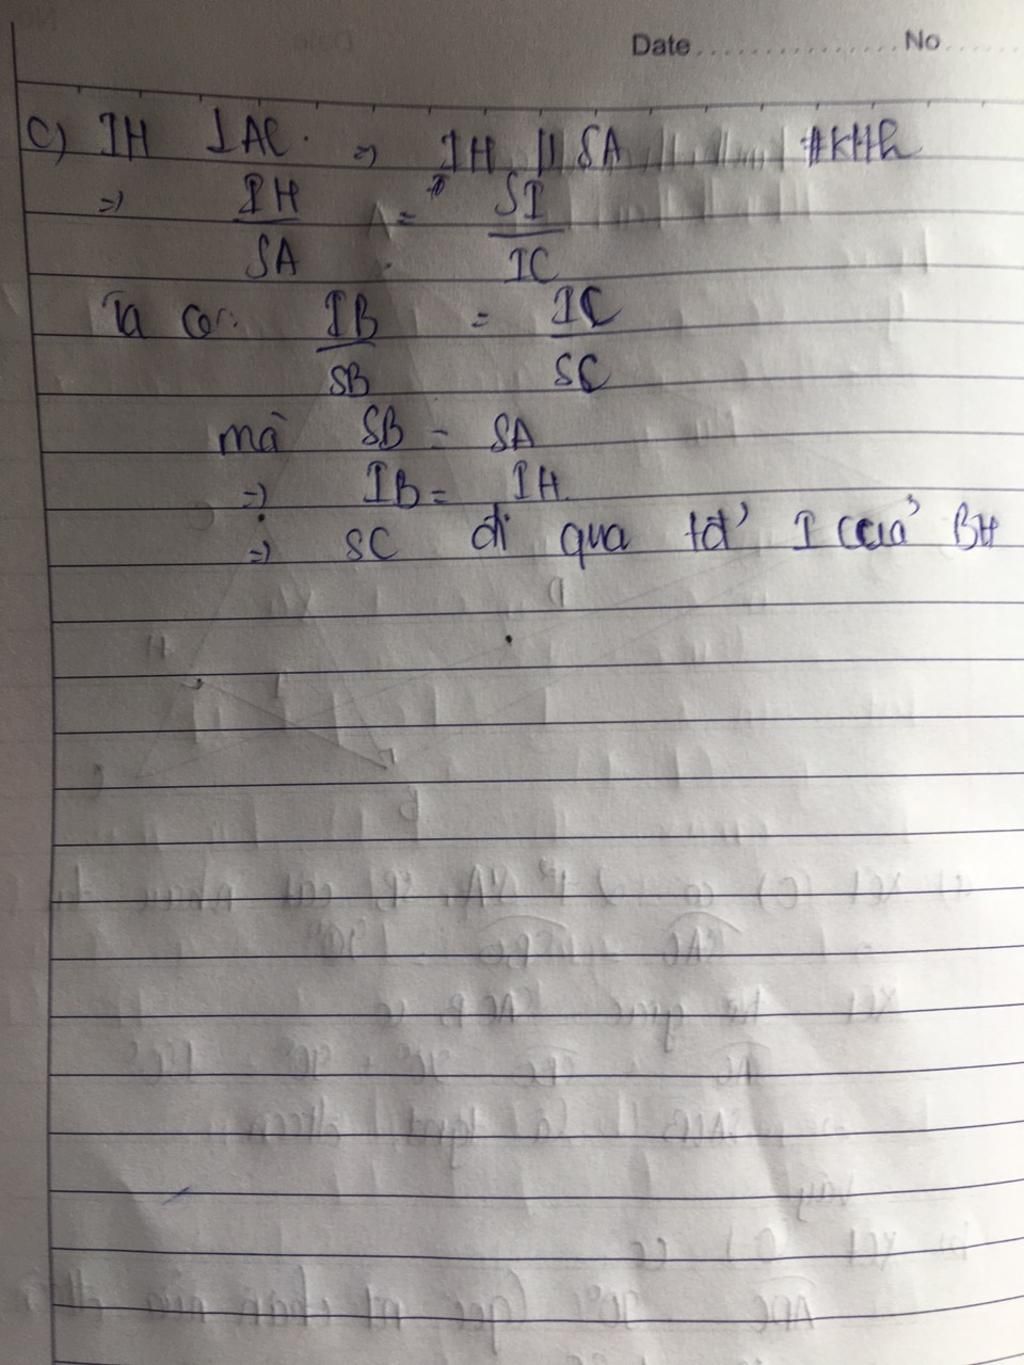 Date ............... No ......
c) IH ⊥ AC. => IH // SA #KHh
=> IH/SA = SI/IC
Ta có: IB/SB = IC/SC
mà SB = SA
=> IB = IH
=> SC đi qua tđ' I của BH